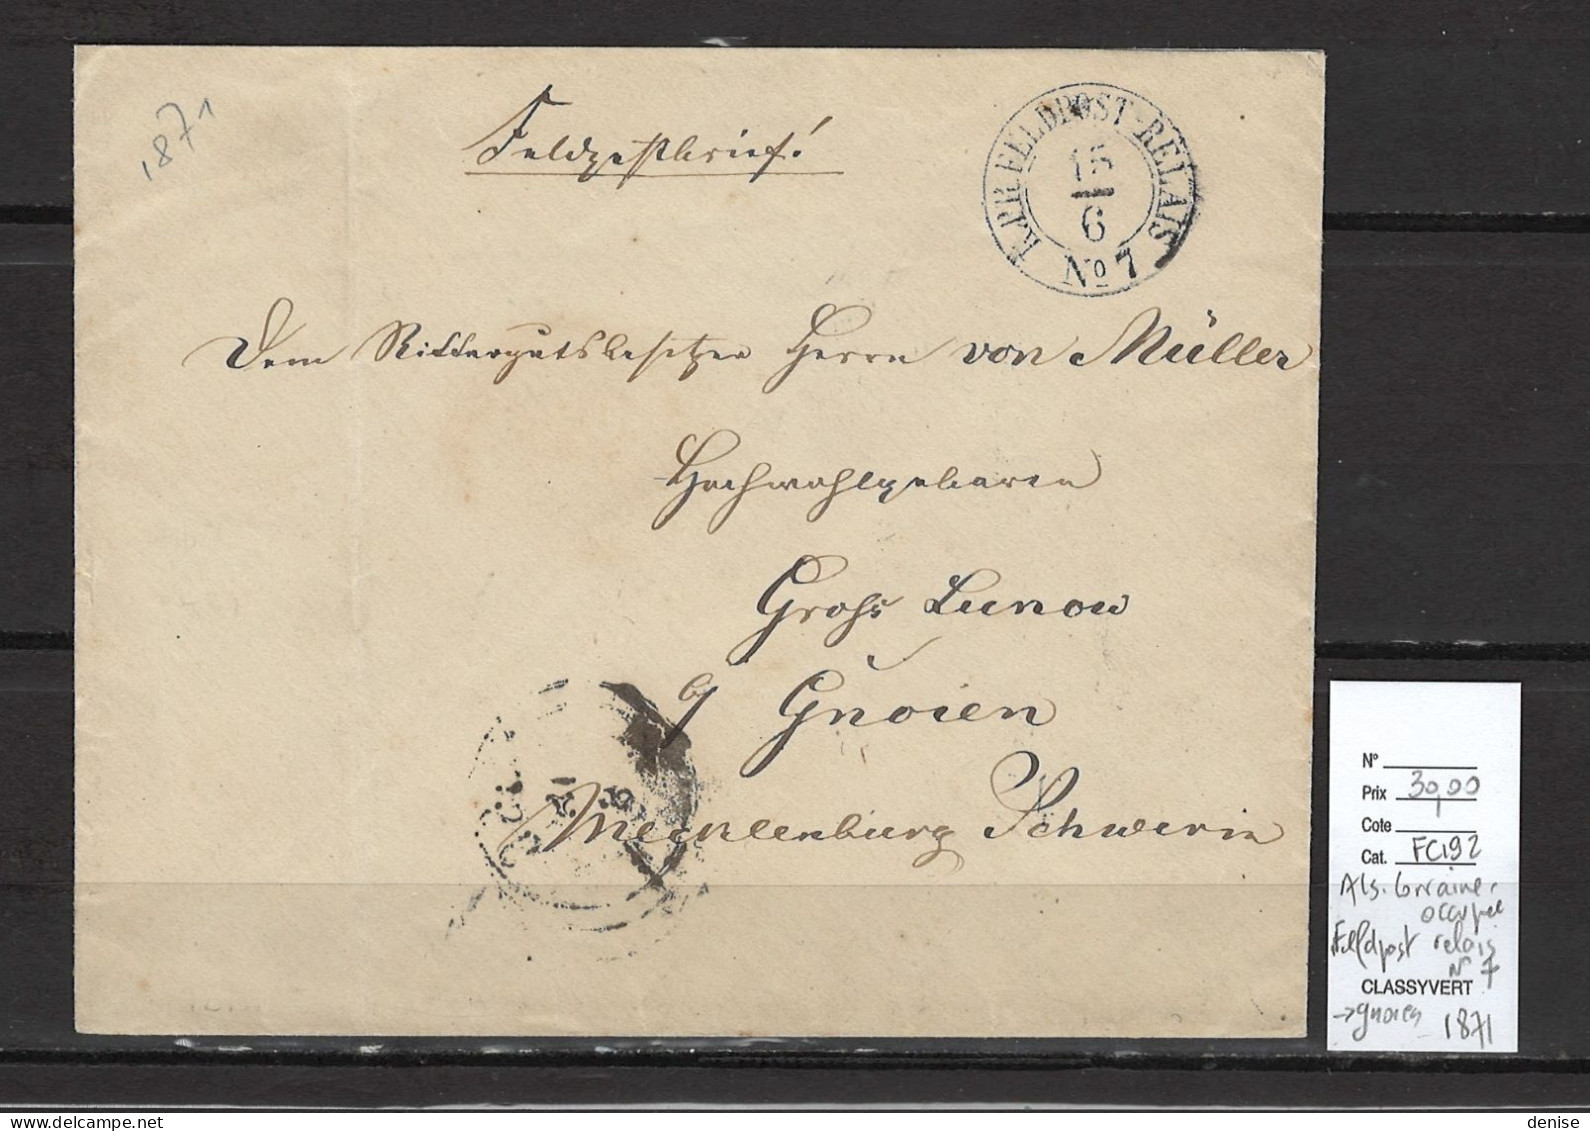 1871
Feldpostbrief!
K.PR.FELDPOST-RELAIS
15
6
No 7
Dem Rittergutsbesitzer Herrn von Müller
Hochwohlgeboren
Groß Lunow
Gnoien
Mecklenburg Schwerin
N°
Prix 30,00
Cote
Cat. FC192
Als. Lorraine.
occupée
Feldpost relais
N° 7
CLASSYVERT
→ Gnoien 1871
denise